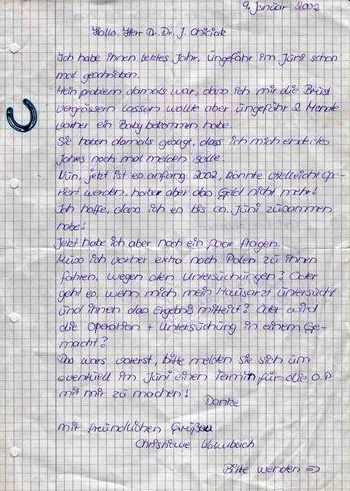 9. Januar 2002
Hallo Herr Dr. Dr. J.
Ich habe ihnen letztes Jahr, ungefähr im Juni schon
mal geschrieben.
Mein problem damals war, dass ich mir die Brüst
vergrössern lassen wollte aber ungefähr 2 Monate
vorher ein Baby bekommen habe.
Sie haben damals gesagt, dass ich mich ende des
Jahres noch mal melden solle.
Nun, jetzt ist es anfang 2002, könnte vielleicht ope-
riert werden, habe aber das Geld nicht mehr!
Ich hoffe, dass ich es bis ca. Juni zusammen
habe!
Jetzt habe ich aber noch ein paar fragen.
Muss ich vorher extra nach Polen zu ihnen
fahren, wegen den Untersuchungen? Oder
geht es, wenn mich mein Hausarzt untersucht
und ihnen das Ergebnis mitteilt? Oder wird
die Operation + Untersuchung in einem Ge-
macht?
Das wars vorerst, bitte melden sie sich um
eventuell im Juni einen Termin für die O.P
mit mir zu machen!
Danke
mit freundlichen Grüßen
Christiane
Bitte wenden =>